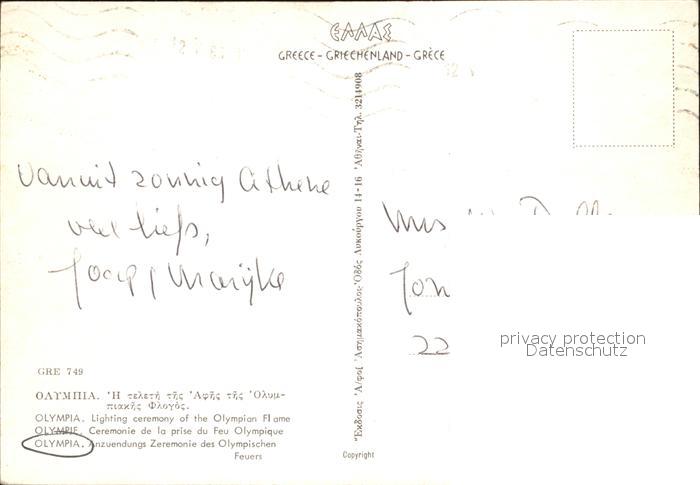 ΕΛΛΑΣ
GREECE - GRIECHENLAND - GRÈCE
Vanuit zonnig Athene
veel liefs,
Joop, Marijke
Jon
22
privacy protection
Datenschutz
Ἔκδοσις Ἀ/φοί Ἀσημακόπουλος Ὁδὸς Λυκούργου 14-16 Ἀθῆναι-Τηλ. 3214908
GRE 749
ΟΛΥΜΠΙΑ. Ἡ τελετή τῆς Ἀφῆς τῆς Ὀλυμ-
πιακῆς Φλογός.
OLYMPIA. Lighting ceremony of the Olympian Flame
OLYMPIE. Ceremonie de la prise du Feu Olympique
OLYMPIA. Anzuendungs Zeremonie des Olympischen
Feuers
Copyright